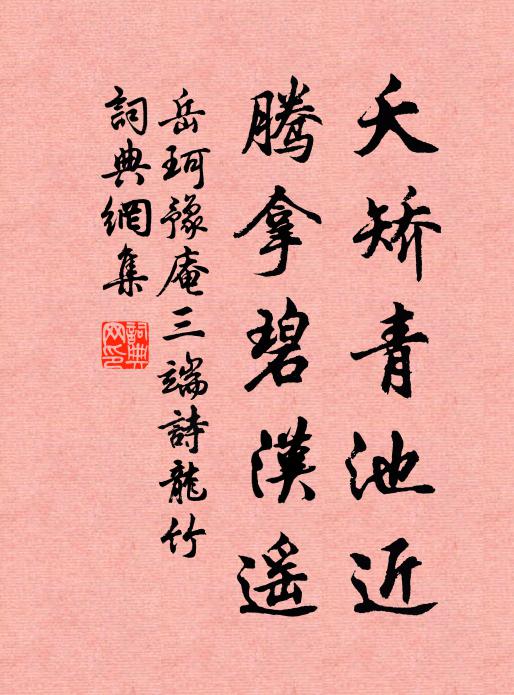 夭矫青池近
腾拿碧漢遥
岳珂豫庵三端詩龍竹
詞典網集
詞典网印